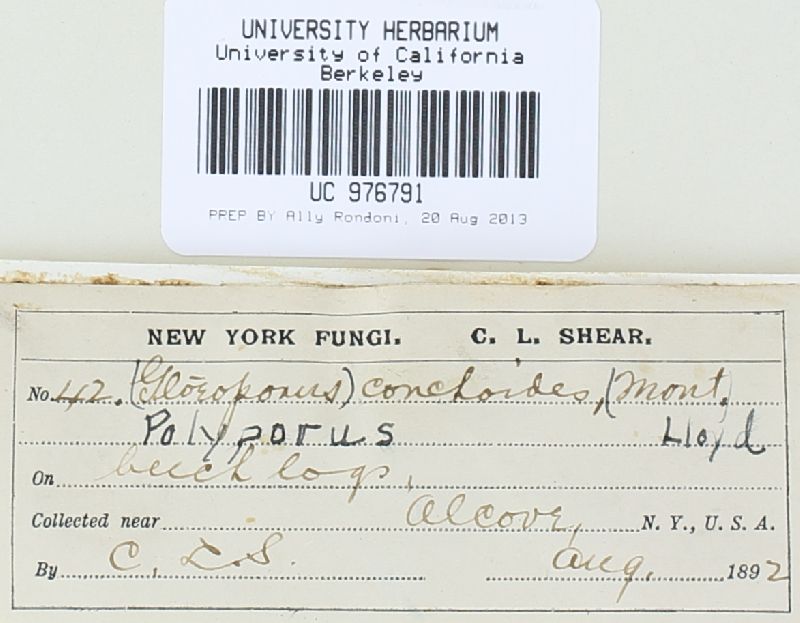 UNIVERSITY HERBARIUM
University of California
Berkeley
UC 976791
PREP BY Ally Rondoni, 20 Aug 2013
NEW YORK FUNGI. C. L. SHEAR.
No. 42. (Glœoporus) conchoides, (Mont.)
Polyporus Lloyd
On beech logs,
Collected near Alcove, N. Y., U. S. A.
By C. L. S. Aug. 1892